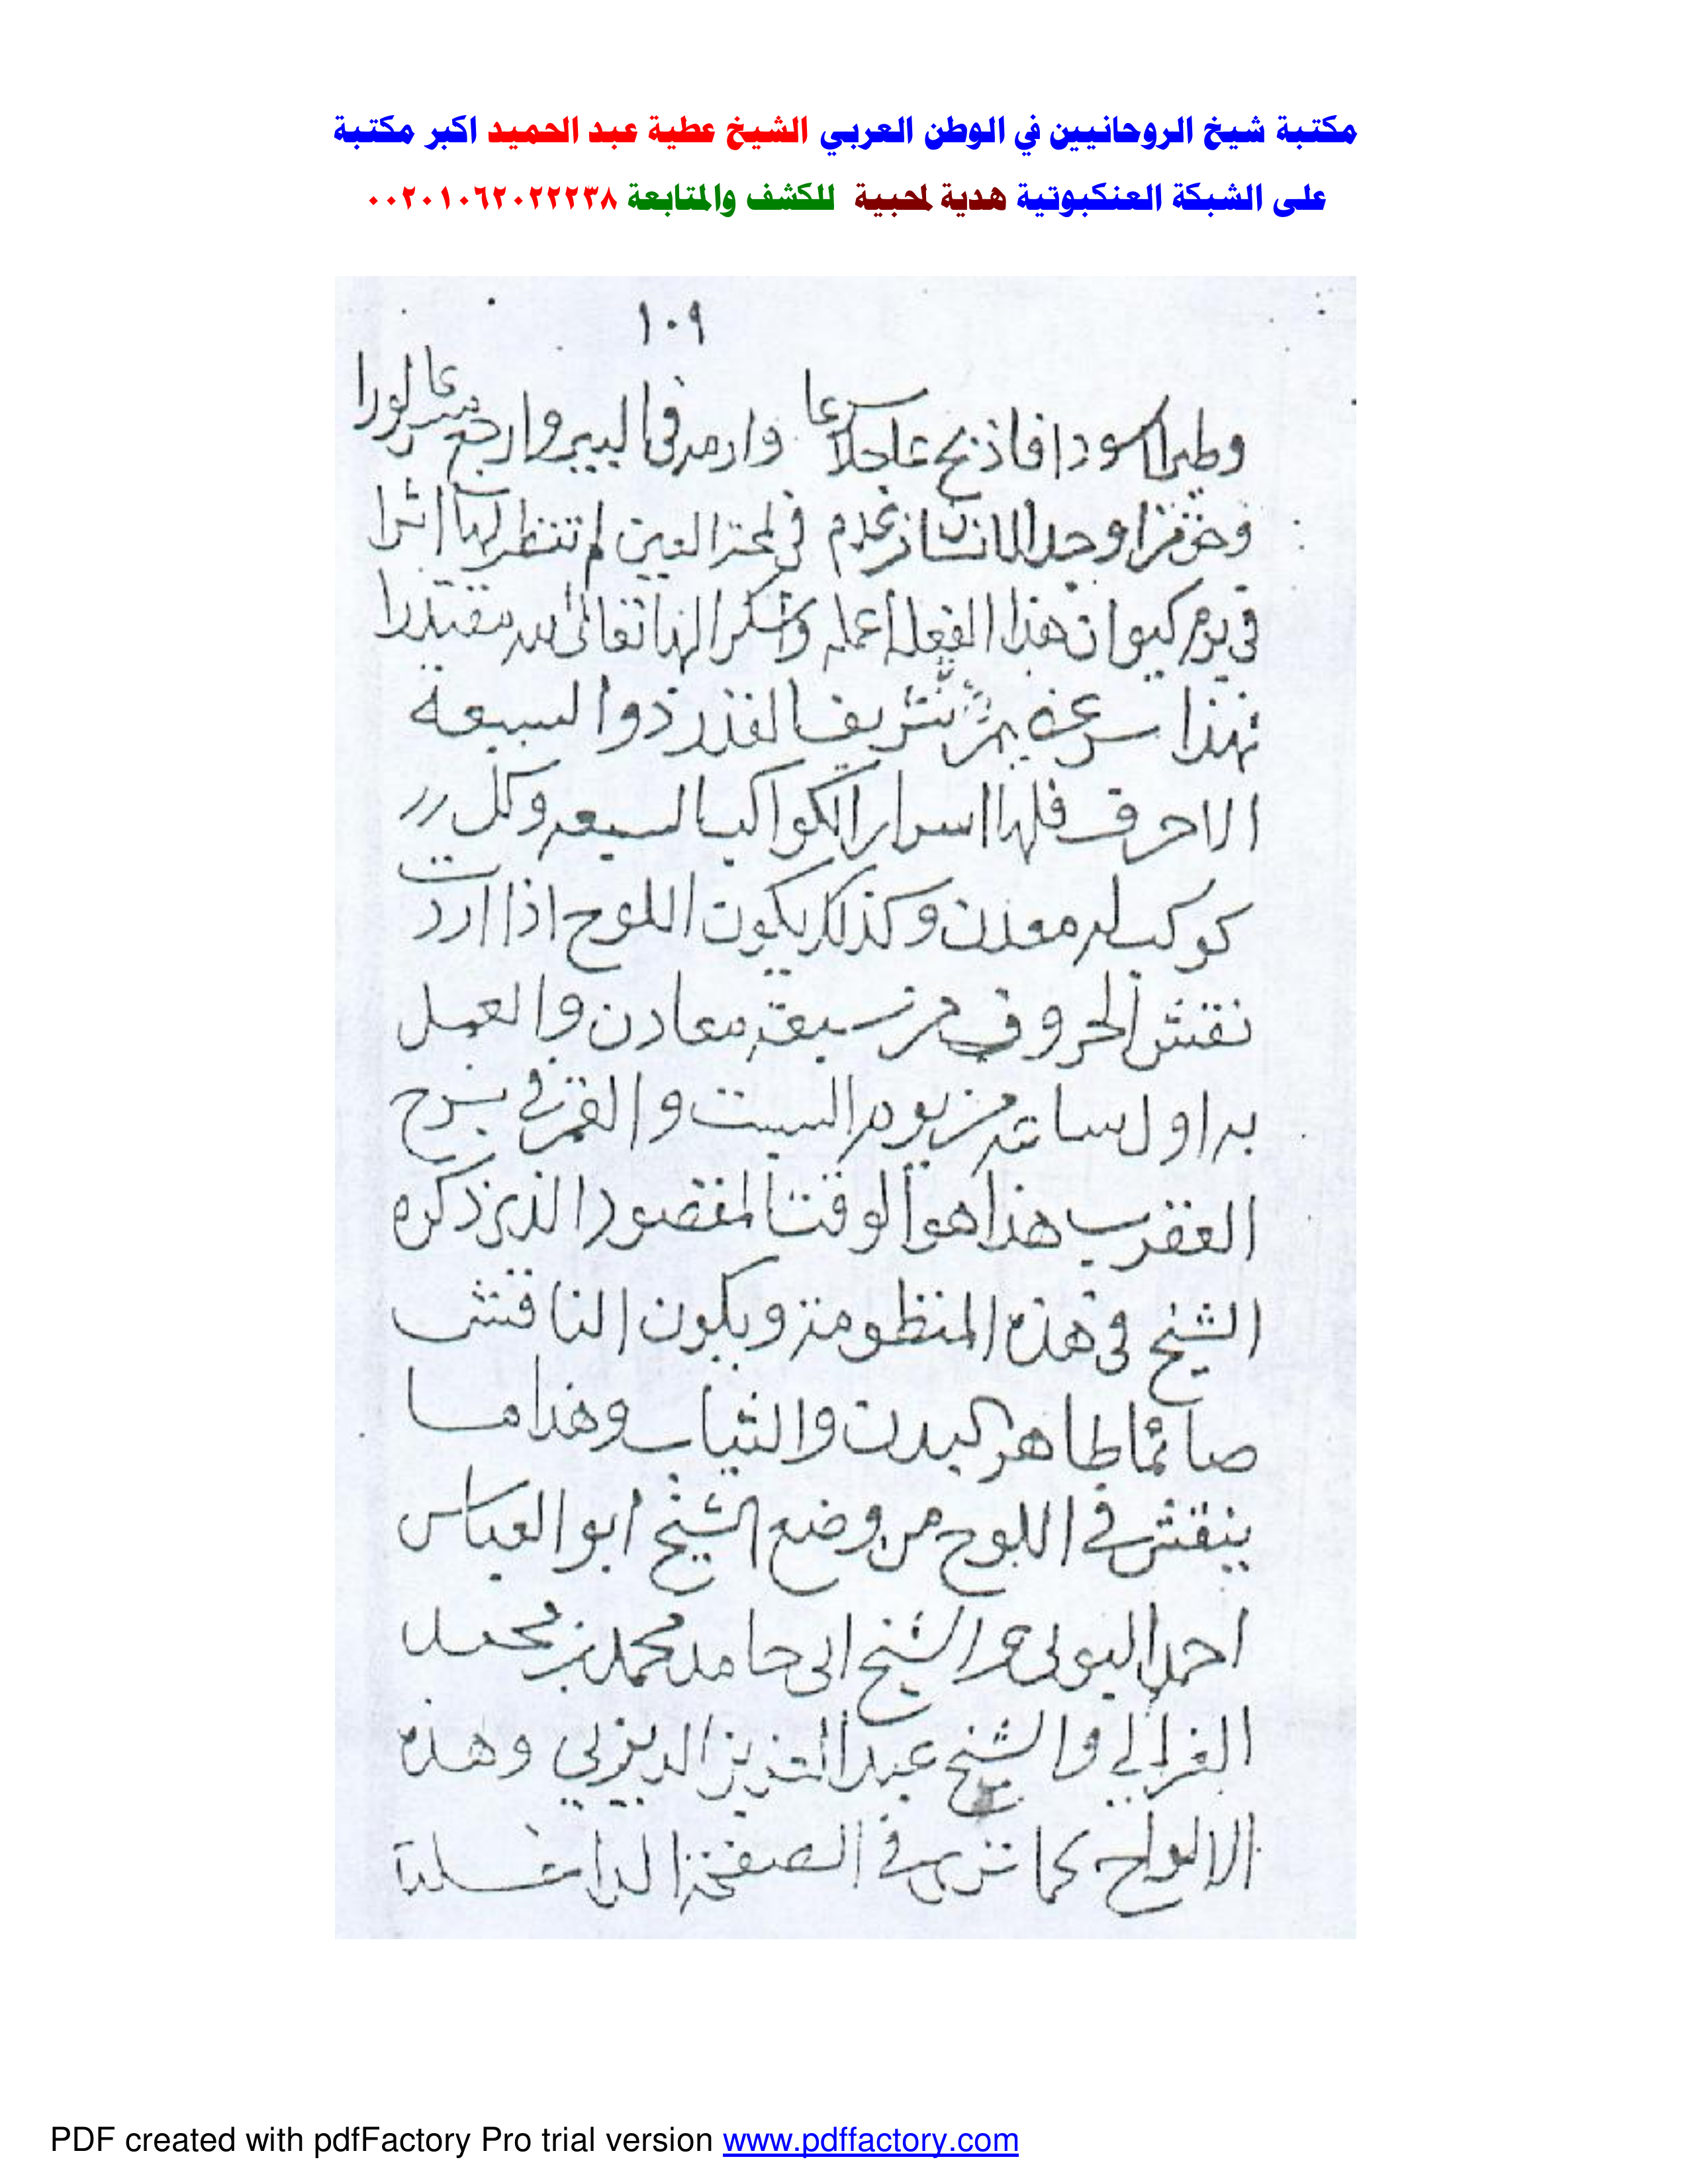 مكتبة شيخ الروحانيين في الوطن العربي الشيخ عطية عبد الحميد اكبر مكتبة
على الشبكة العنكبوتية هدية لمحبية للكشف والمتابعة ٠٠٢٠١٠٦٢٠٢٢٢٣٨
١٠٩
وطيرا سودا فاذبح عاجلا مسرعا وارمه فى البير وارجع مسرعا لورا
فى لمحة العين لم تنظر لها اثرا
فى يوم كيوان هذا الفعل أعمله واشكر الهنا تعالى لله مقتدرا
فهذا شريف القدر ذوا السبعة
الاحرف فلها اسرار الكواكب السبعه وكل
كوكب له معدن وكذلك يكون اللوح اذا اردت
نقش الحروف من سبعة معادن والعمل
به اول ساعة من يوم السبت والقمر فى برج
العقرب هذا هو الوقت المقصود الذى ذكره
الشيخ فى هذه المنظومة ويكون الناقش
صائما طاهر البدن والثياب وهذا ما
ينقش فى اللوح من وضع الشيخ ابو العباس
احمد البونى والشيخ ابى حامد محمد بن محمد
الغزالي والشيخ عبد العزيز الديريني وهذه
الالواح كما ترى فى الصفحة الداخلية
PDF created with pdfFactory Pro trial version www.pdffactory.com